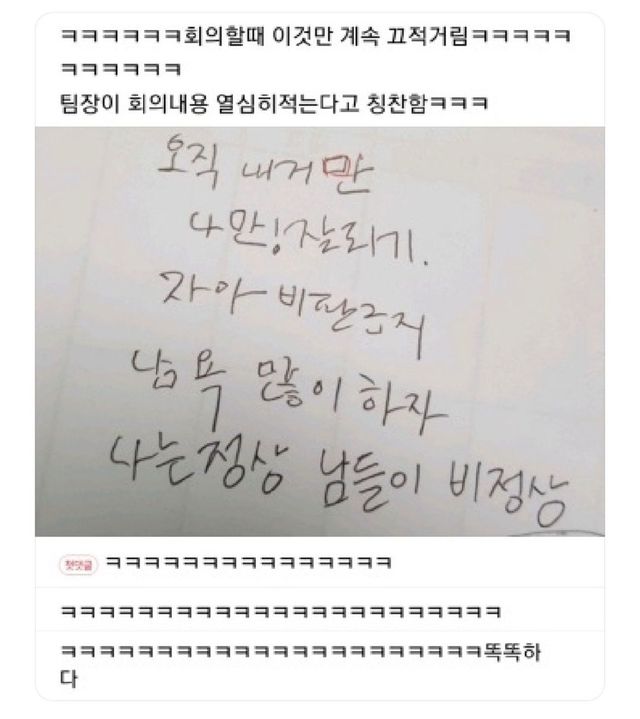 ㅋㅋㅋㅋㅋㅋ회의할때 이것만 계속 끄적거림ㅋㅋㅋㅋㅋ
ㅋㅋㅋㅋㅋㅋ
팀장이 회의내용 열심히적는다고 칭찬함ㅋㅋㅋ
오직 내거만
나만! 잘되기.
자아 비판금지
남 욕 많이 하자
나는정상 남들이 비정상
첫댓글 ㅋㅋㅋㅋㅋㅋㅋㅋㅋㅋㅋㅋㅋㅋㅋ
ㅋㅋㅋㅋㅋㅋㅋㅋㅋㅋㅋㅋㅋㅋㅋㅋㅋㅋㅋㅋㅋㅋㅋ
ㅋㅋㅋㅋㅋㅋㅋㅋㅋㅋㅋㅋㅋㅋㅋㅋㅋㅋㅋㅋㅋㅋ똑똑하
다